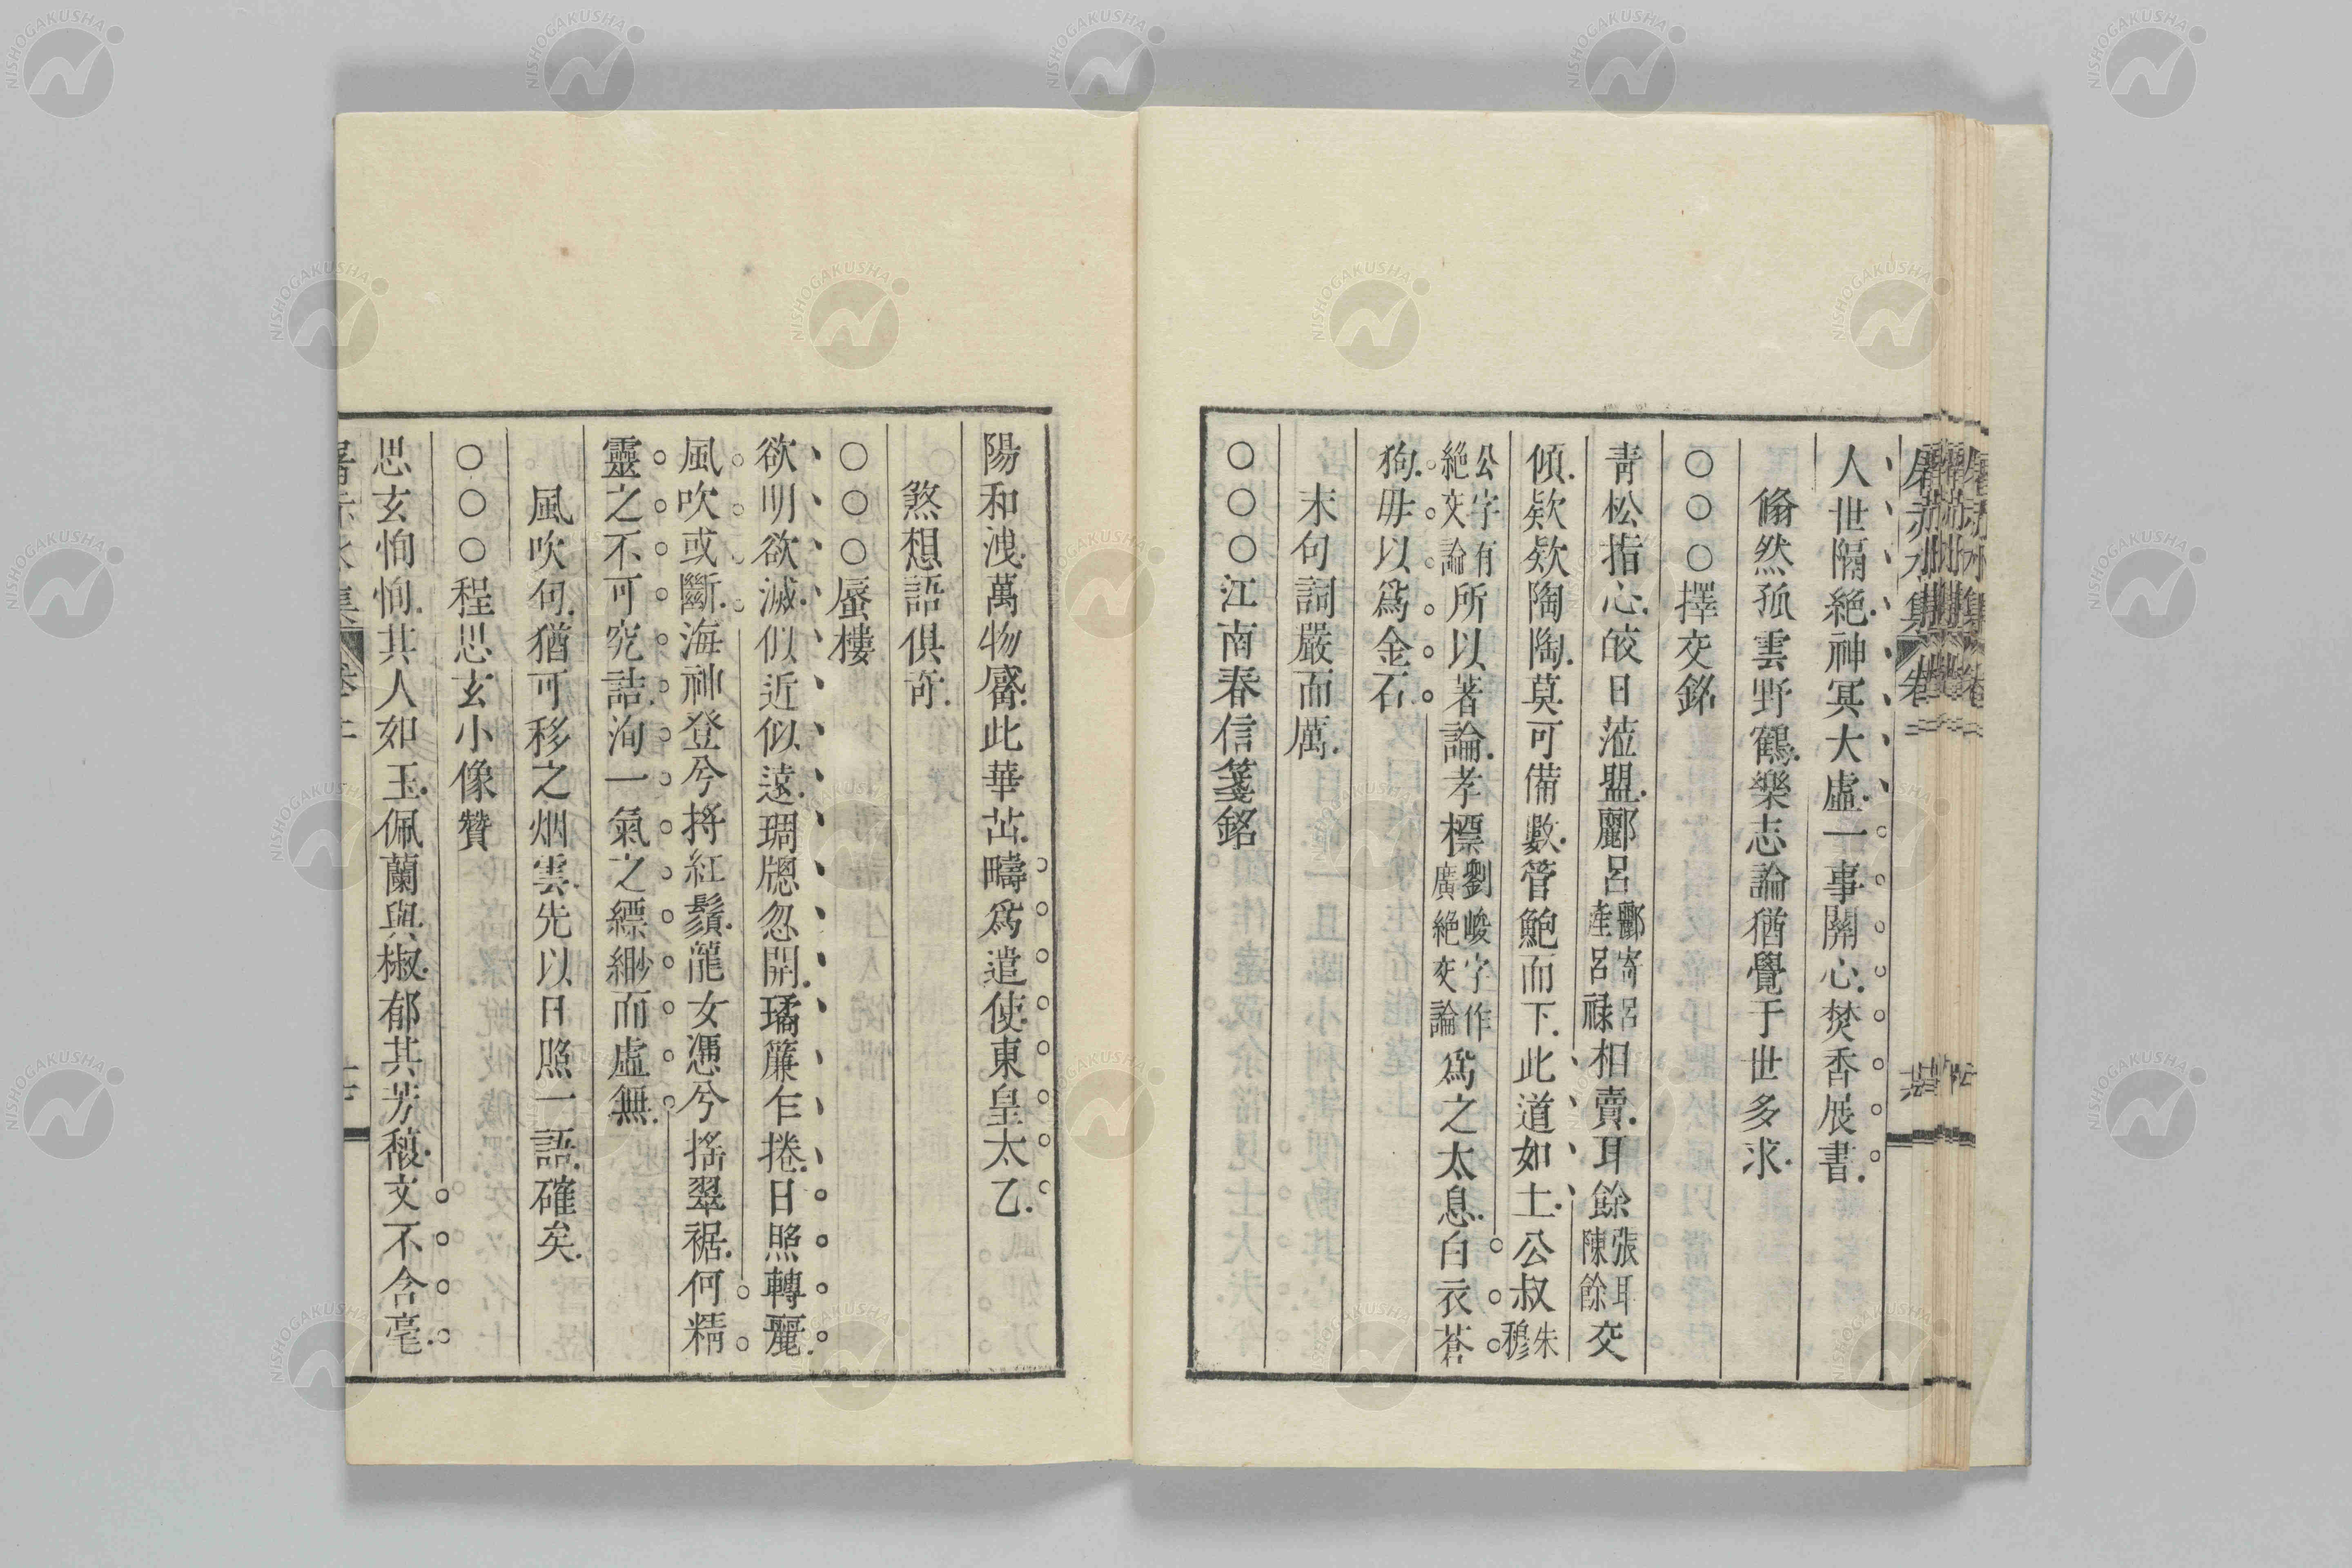 人世隔絶.神冥大虛.一事關心.焚香展書.
翛然孤雲野鶴.樂志論猶覺于世多求.
○○○擇交銘
青松指心.皎日蒞盟.酈呂酈寄呂産呂祿相賣.耳餘張耳陳餘交
傾.欵欵陶陶.莫可備數.管鮑而下.此道如土.公叔朱穆
公字有絶交論所以著論.孝標劉峻字作廣絶交論爲之太息.白衣蒼
狗.毋以爲金石.
末句詞嚴而厲.
○○○江南春信箋銘
陽和洩.萬物感.此華茁.疇爲遣使.東皇太乙.
煞想語俱奇.
○○○蜃樓
欲明欲滅.似近似遠.琱牕忽開.璚簾乍捲.日照轉麗.
風吹或斷.海神登兮捋紅鬚.龍女憑兮搖翠裾.何精
靈之不可究詰.洵一氣之縹緲而虛無.
風吹句.猶可移之烟雲.先以日照一語.確矣.
○○○程思玄小像贊
思玄恂恂.其人如玉.佩蘭與椒.郁其芳穠.文不含毫.
屠赤水集 卷二